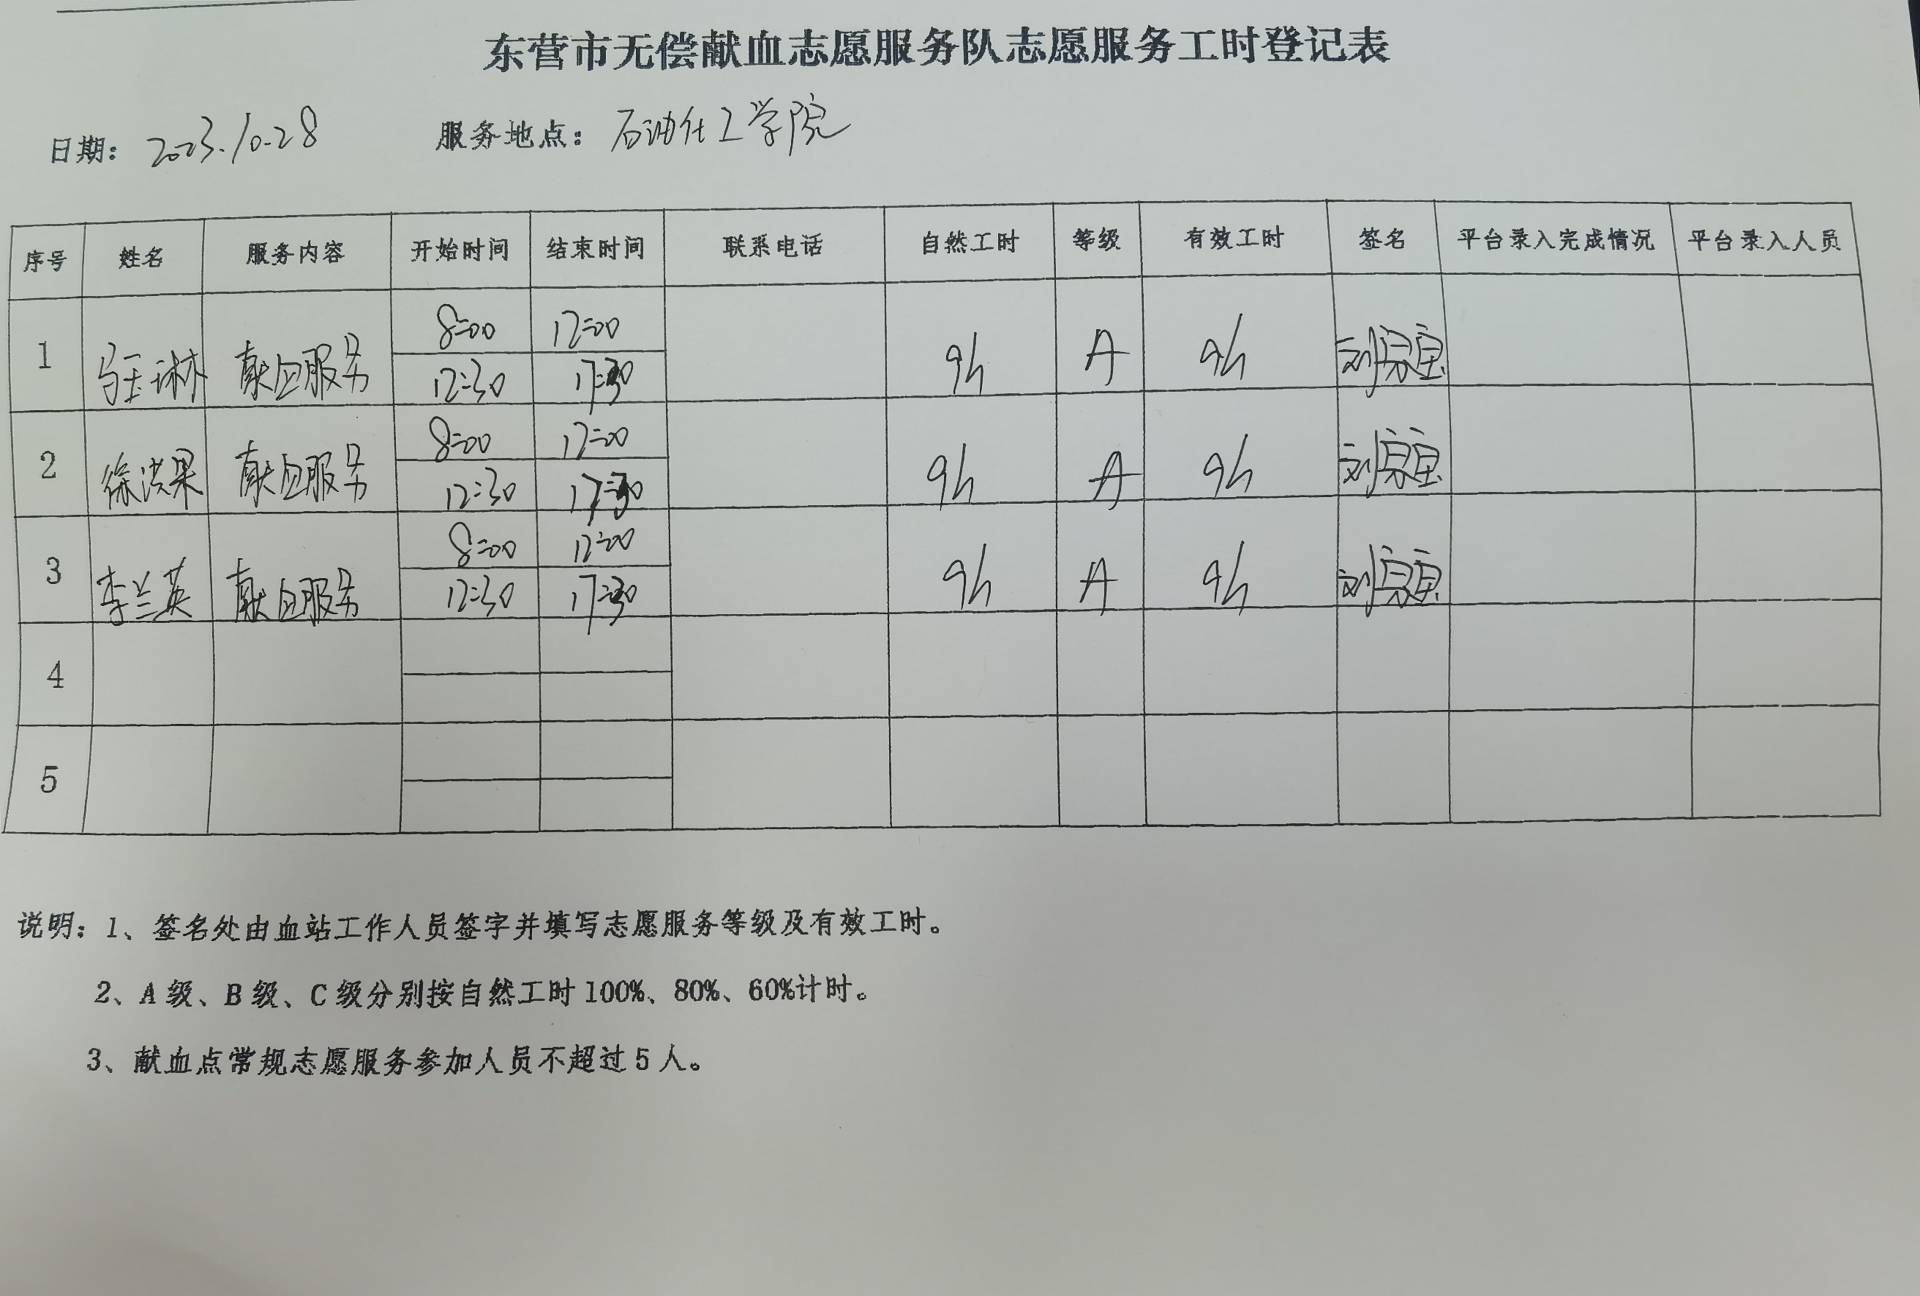 东营市无偿献血志愿服务队志愿服务工时登记表
日期: 2023.10.28 服务地点: 石油化工学院
序号 姓名 服务内容 开始时间 结束时间 联系电话 自然工时 等级 有效工时 签名 平台录入完成情况 平台录入人员
8:00 12:00
1 马玉琳 献血服务 9h A 9h
12:30 17:30
8:00 12:00
2 徐洪果 献血服务 9h A 9h
12:30 17:30
8:00 12:00
3 李兰英 献血服务 9h A 9h
12:30 17:30
4
5
说明: 1、签名处由血站工作人员签字并填写志愿服务等级及有效工时。
2、A级、B级、C级分别按自然工时100%、80%、60%计时。
3、献血点常规志愿服务参加人员不超过5人。